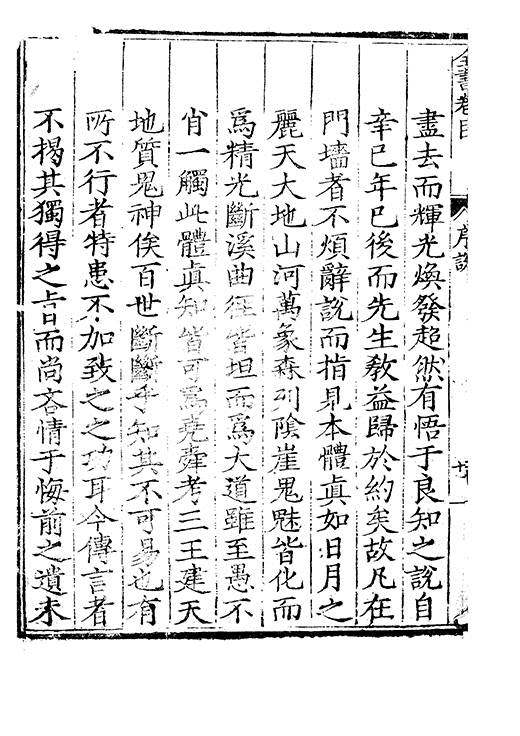 全書卷目 序說
盡去而輝光煥發超然有悟于良知之說自
辛巳年已後而先生教益歸於約矣故凡在
門墻者不煩辭說而指見本體真如日月之
麗天大地山河萬象森列陰崖鬼魅皆化而
為精光斷溪曲徑皆坦而為大道雖至愚不
肖一觸此體真知皆可為堯舜考三王建天
地質鬼神俟百世斷斷乎知其不可易也有
所不行者特患不加致之之功耳今傳言者
不揭其獨得之旨而尚吝情于悔前之遺未